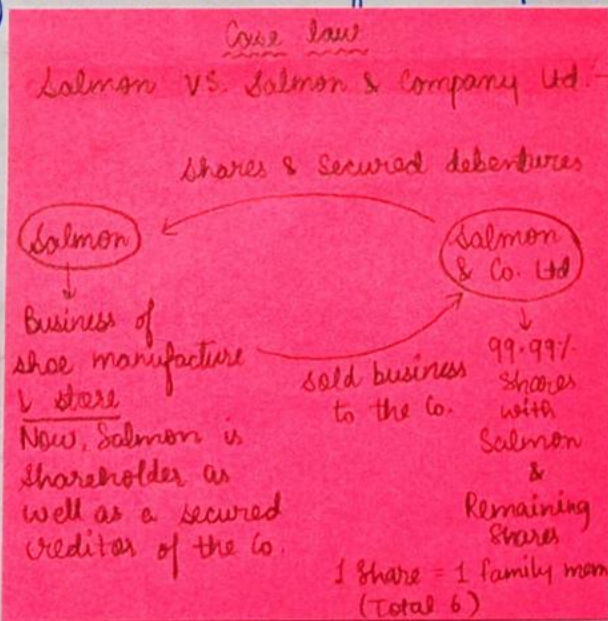 Case law
Salmon VS. Salmon & Company Ltd.-
Shares & Secured debentures
Salmon
Salmon
& Co. Ltd
Business of
shoe manufacture
& store
Now, Salmon is
shareholder as
well as a secured
creditor of the Co.
sold business
to the Co.
99.99%
Shares
with
Salmon
&
Remaining
Shares
1 Share = 1 family mem
(Total 6)